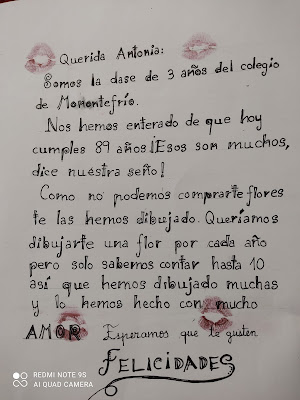 Querida Antonia:
Somos la clase de 3 años del colegio
de Momontefrío.
Nos hemos enterado de que hoy
cumples 89 años ¡Esos son muchos,
dice nuestra seño!
Como no podemos comprarte flores
te las hemos dibujado. Queríamos
dibujarte una flor por cada año
pero solo sabemos contar hasta 10
así que hemos dibujado muchas
y lo hemos hecho con mucho
AMOR Esperamos que te gusten
FELICIDADES
REDMI NOTE 9S
AI QUAD CAMERA